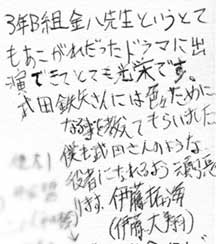 3年B組金八先生というとて
もあこがれだったドラマに出
演できてとても光栄です。
武田鉄矢さんには色々ために
なる事を教えてもらいました
僕も武田さんのような
役者になれるよう頑張
ります。伊藤
(伊藤大翔)